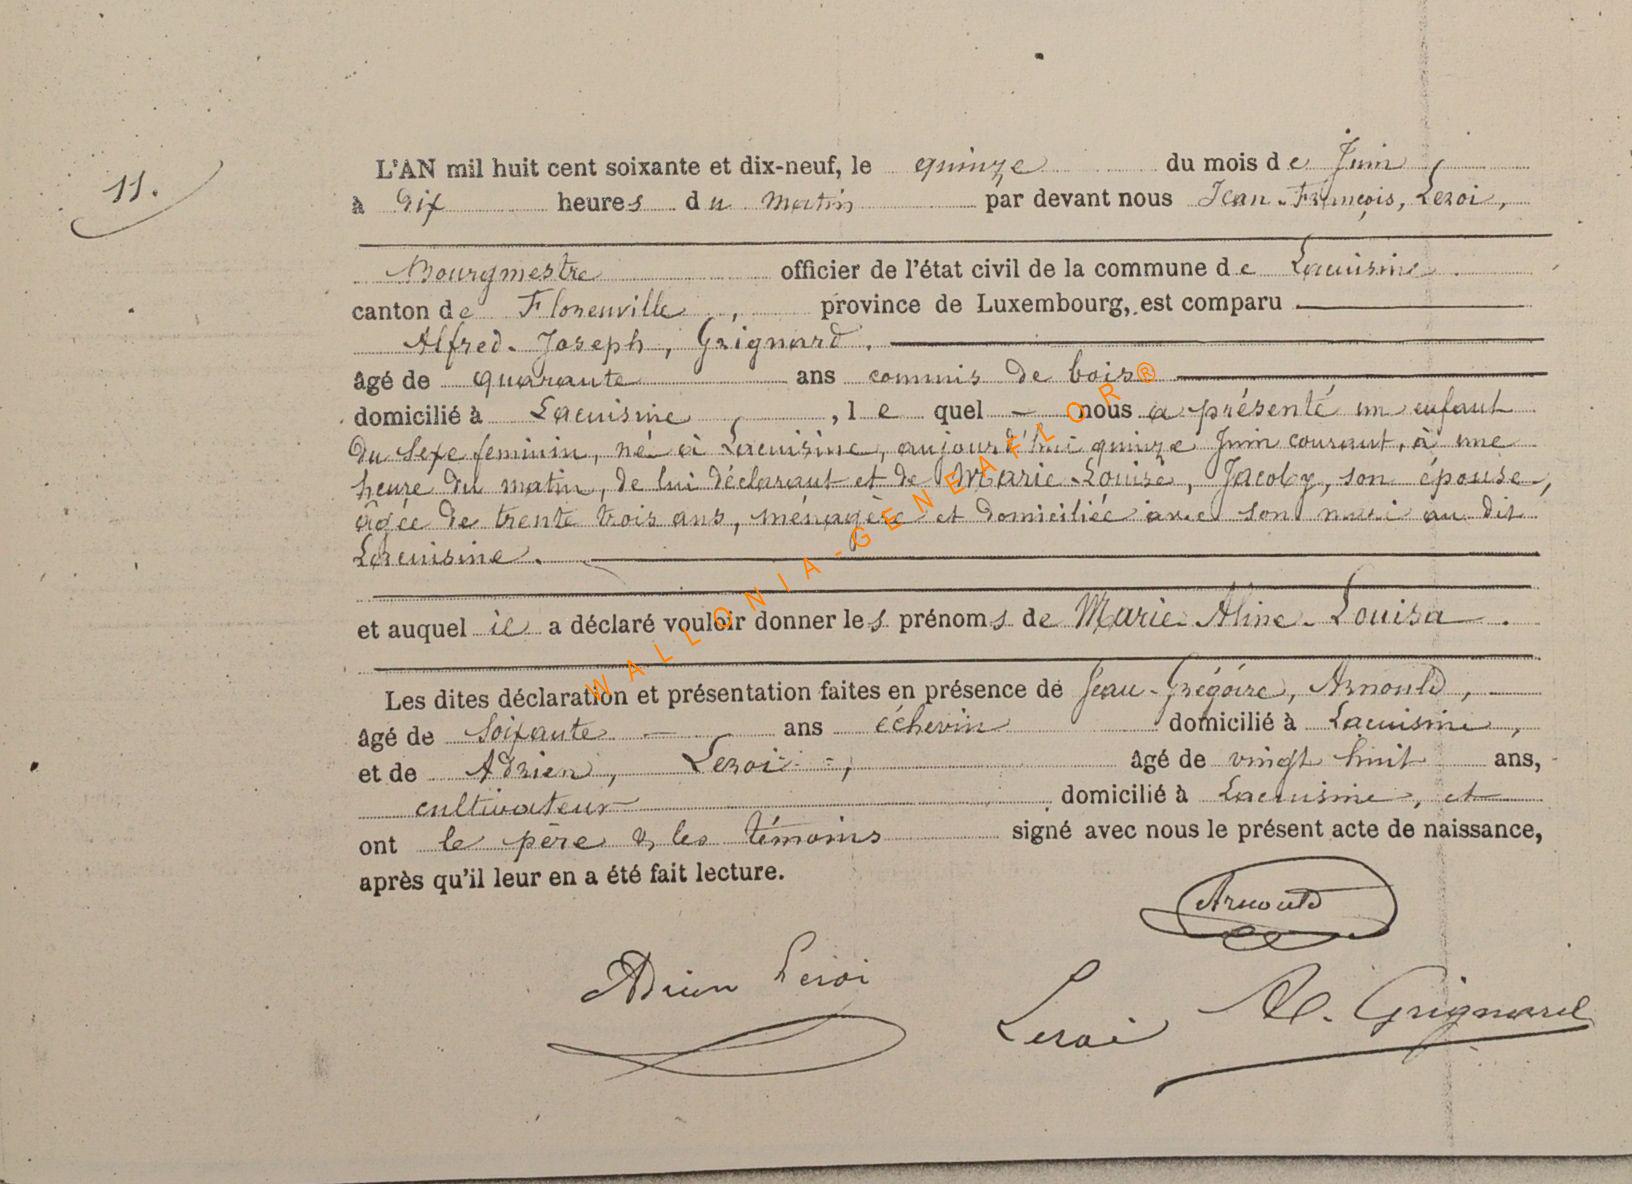 11.
L'AN mil huit cent soixante et dix-neuf, le quinze du mois de Juin
à dix heures du matin par devant nous Jean-François, Leroi,
Bourgmestre officier de l'état civil de la commune de Lacuisine.
canton de Florenville, province de Luxembourg, est comparu
Alfred-Joseph, Grignard.
âgé de quarante ans commis de bois
domicilié à Lacuisine, lequel nous a présenté un enfant
du sexe feminin, né à Lacuisine, aujourd'hui quinze Juin courant, à une
heure du matin, de lui déclarant et de Marie-Louise, Jacoby, son épouse,
âgée de trente trois ans, ménagère et domiciliée avec son mari au dit
Lacuisine.
et auquel il a déclaré vouloir donner les prénoms de Marie-Aline-Louisa.
Les dites déclaration et présentation faites en présence de Jean-Grégoire, Arnould,
âgé de soixante ans échevin domicilié à Lacuisine,
et de Adrien, Leroi, âgé de vingt huit ans,
cultivateur domicilié à Lacuisine, et
ont le père & les témoins signé avec nous le présent acte de naissance,
après qu'il leur en a été fait lecture.
Arnould
Adrien Leroi
Leroi A. Grignard
WALLONIA-GENEAFLOR®